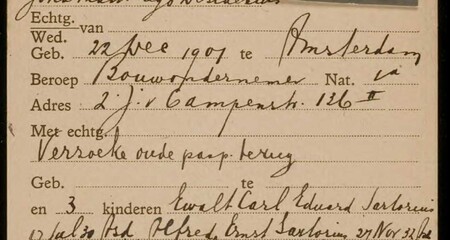 Echtg.
Wed. van
Geb. 22 Dec 1901 te Amsterdam
Beroep Bouwondernemer Nat.
Adres 2. J. v Campenstr. 126 II
Met echtg.
Verzoeke oude pasp. terug
Geb. te
en 3 kinderen Ewalt Carl Eduard Sartorius
Jul 30 Asd Alfred Ernst Sartorius 27 Nov 32